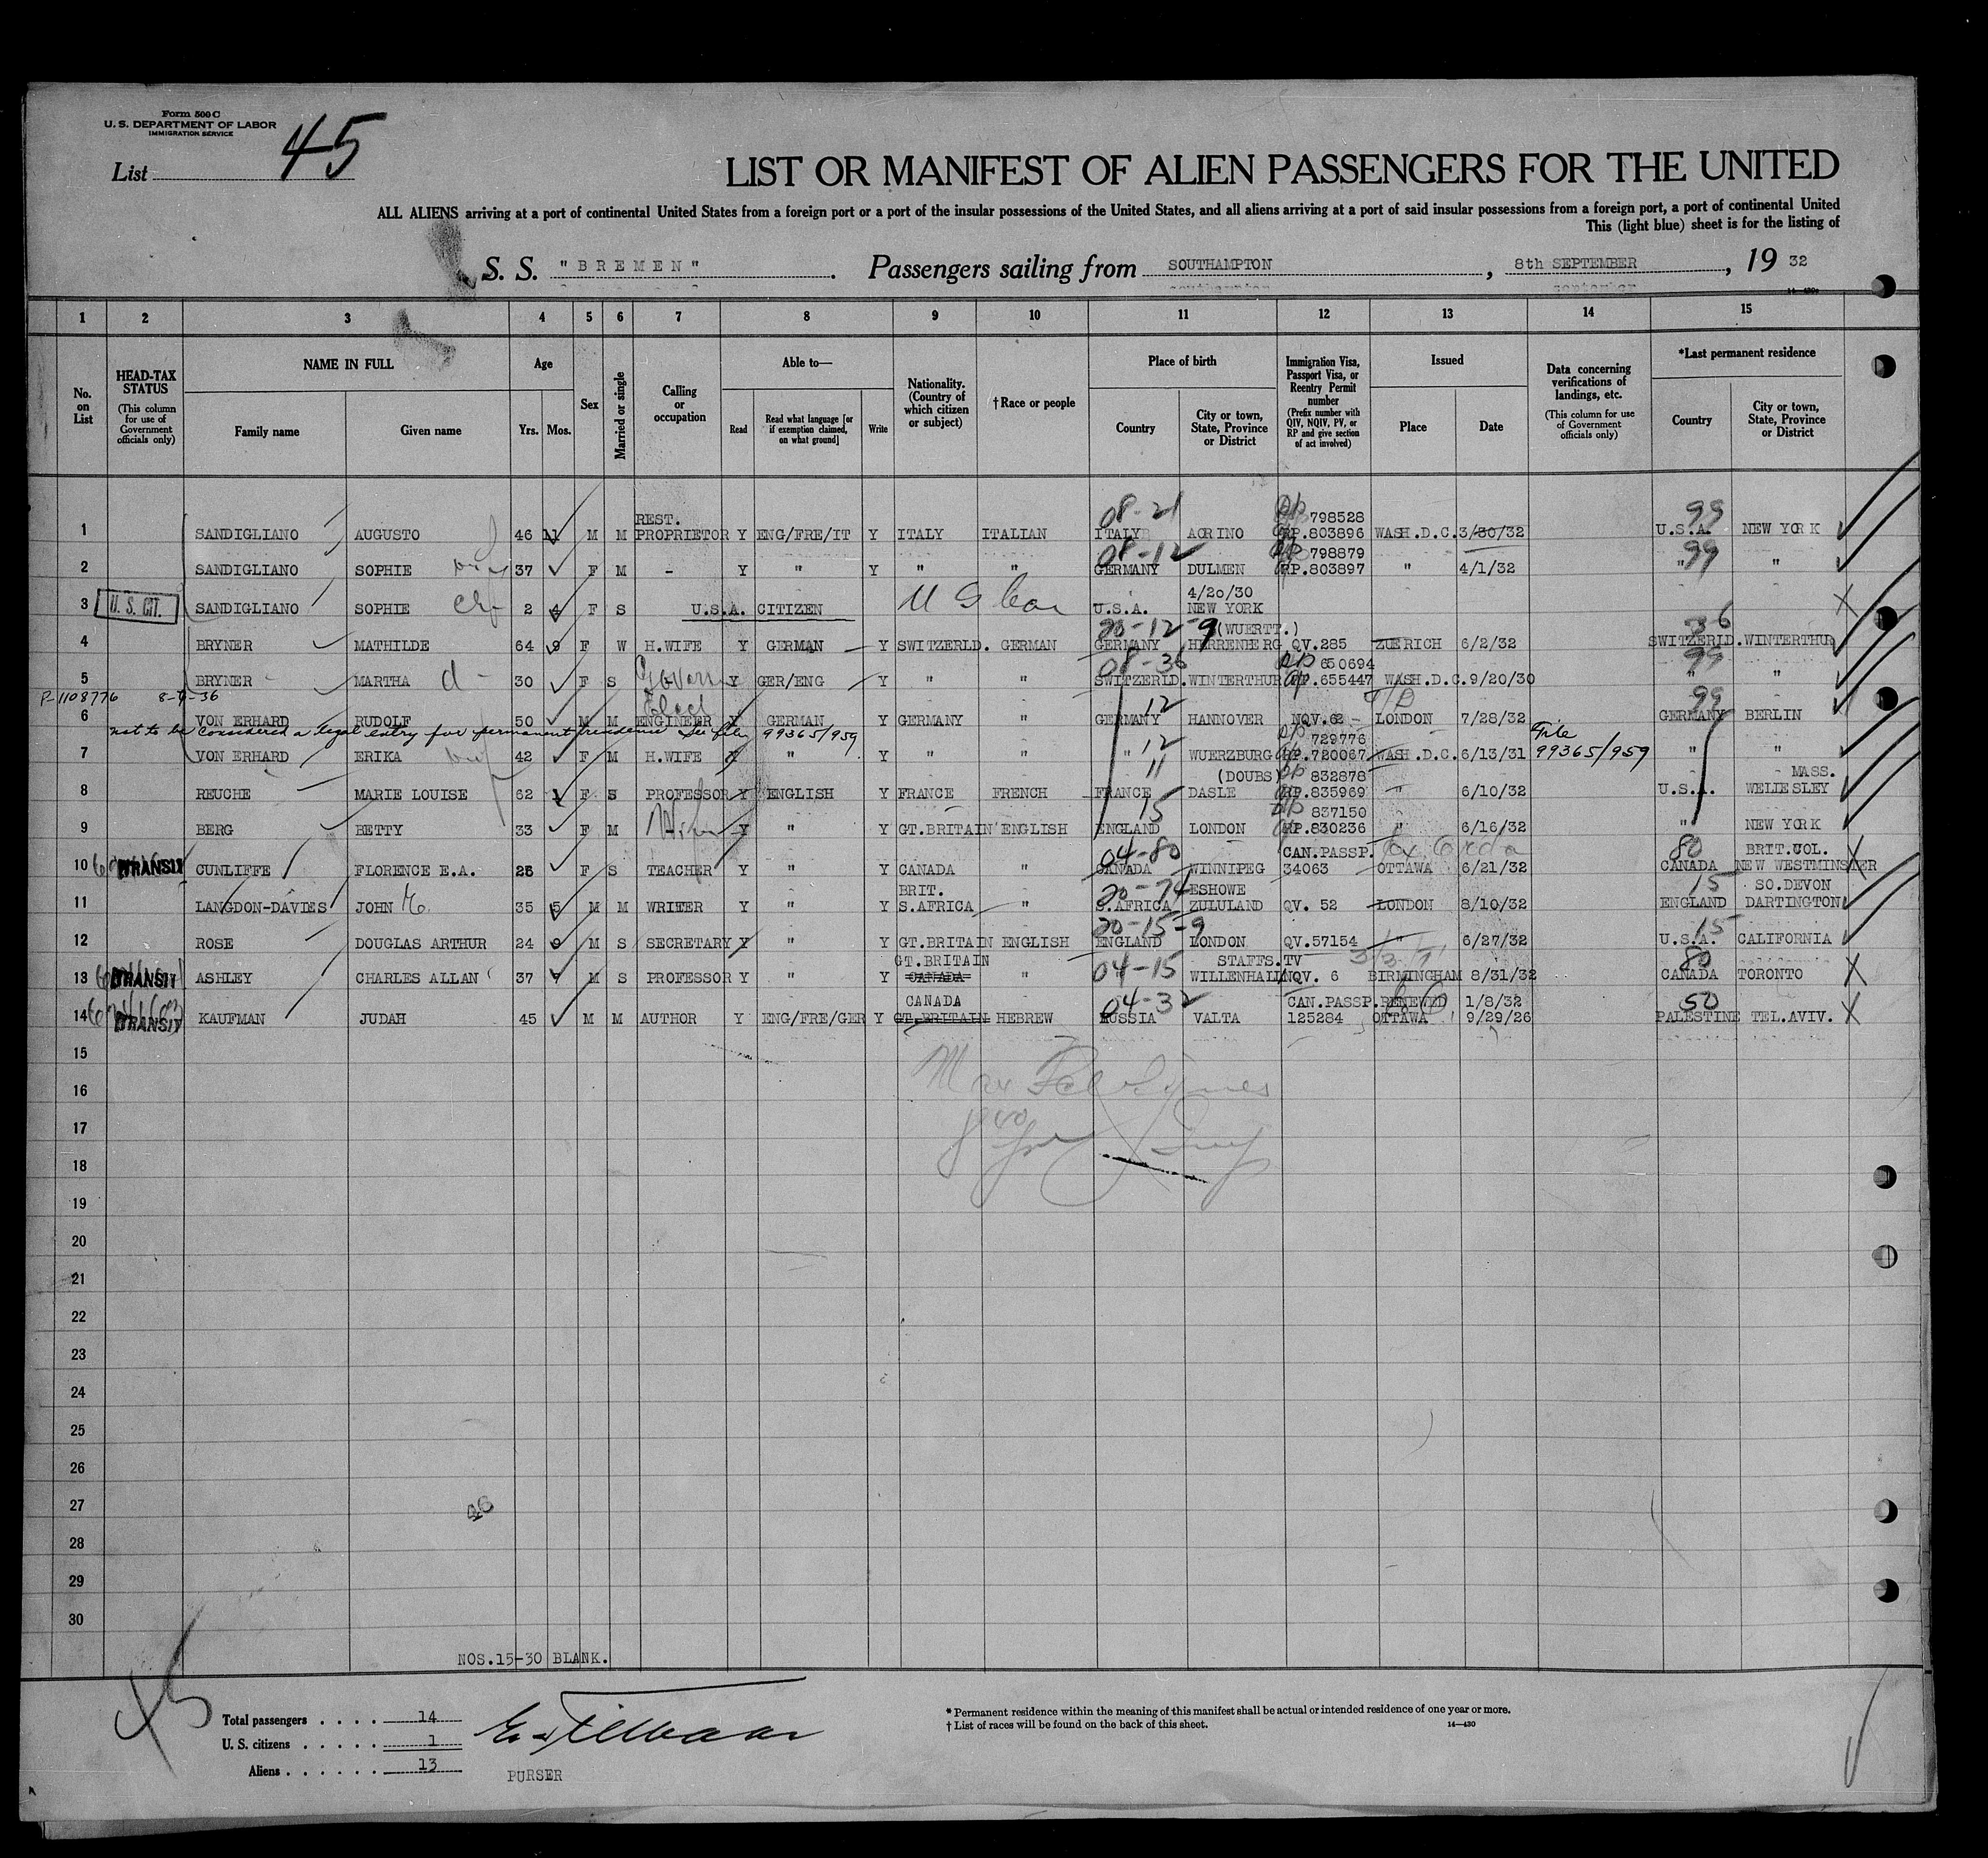 Form 500 C
U. S. DEPARTMENT OF LABOR
IMMIGRATION SERVICE
List 45
LIST OR MANIFEST OF ALIEN PASSENGERS FOR THE UNITED
ALL ALIENS arriving at a port of continental United States from a foreign port or a port of the insular possessions of the United States, and all aliens arriving at a port of said insular possessions from a foreign port, a port of continental United
This (light blue) sheet is for the listing of
S. S. "BREMEN". Passengers sailing from SOUTHAMPTON, 8th SEPTEMBER, 19 32
1 2 3 4 5 6 7 8 9 10 11 12 13 14 15
No. on List
HEAD-TAX STATUS
(This column for use of Government officials only)
NAME IN FULL
Family name Given name
Age
Yrs. Mos.
Sex
Married or single
Calling or occupation
Able to—
Read Read what language [or if exemption claimed, on what ground] Write
Nationality. (Country of which citizen or subject)
†Race or people
Place of birth
Country City or town, State, Province or District
Immigration Visa, Passport Visa, or Reentry Permit number
(Prefix number with QIV, NQIV, PV, or RP and give section of act involved)
Issued
Place Date
Data concerning verifications of landings, etc.
(This column for use of Government officials only)
*Last permanent residence
Country City or town, State, Province or District
REST. 08-21 798528 99
1 SANDIGLIANO AUGUSTO 46 11 M M PROPRIETOR Y ENG/FRE/IT Y ITALY ITALIAN ITALY ACRINO RP.803896 WASH.D.C. 3/30/32 U.S.A. NEW YORK
08-12 798879 99
2 SANDIGLIANO SOPHIE 37 F M - Y " Y " " GERMANY DULMEN RP.803897 " 4/1/32 " "
4/20/30
3 U. S. CIT. SANDIGLIANO SOPHIE 2 4 F S U.S.A. CITIZEN U.S.A. NEW YORK
20-12-9 (WUERTT.) 36
4 BRYNER MATHILDE 64 9 F W H.WIFE Y GERMAN Y SWITZERLD. GERMAN GERMANY HERRENBERG QV.285 ZUERICH 6/2/32 SWITZERLD. WINTERTHUR
08-36 650694 99
5 BRYNER MARTHA d- 30 F S Y GER/ENG Y " " SWITZERLD. WINTERTHUR RP.655447 WASH.D.C. 9/20/30 " "
P-1108776 8-9-36 Elect 12 99
6 VON ERHARD RUDOLF 50 M M ENGINEER Y GERMAN Y GERMANY " GERMANY HANNOVER NQV.62 - LONDON 7/28/32 GERMANY BERLIN
not to be considered a legal entry for permanent residence See file 99365/959 729776 File
7 VON ERHARD ERIKA 42 F M H.WIFE Y " Y " " " 12 WUERZBURG RP.720067 WASH.D.C. 6/13/31 99365/959 " "
11 (DOUBS) 832878 MASS.
8 REUCHE MARIE LOUISE 62 1 F S PROFESSOR Y ENGLISH Y FRANCE FRENCH FRANCE DASLE RP.835969 " 6/10/32 U.S.A. WELLESLEY
15 837150
9 BERG BETTY 33 F M Y " Y GT.BRITAIN ENGLISH ENGLAND LONDON RP.830236 " 6/16/32 " NEW YORK
04-80 CAN.PASSP. 80 BRIT.COL.
10 TRANSIT CUNLIFFE FLORENCE E.A. 26 F S TEACHER Y " Y CANADA " CANADA WINNIPEG 34063 OTTAWA 6/21/32 CANADA NEW WESTMINSTER
BRIT. 20-74 ESHOWE 15 SO.DEVON
11 LANGDON-DAVIES JOHN E. 35 5 M M WRITER Y " Y S.AFRICA " S.AFRICA ZULULAND QV. 52 LONDON 8/10/32 ENGLAND DARTINGTON
20-15-9 15
12 ROSE DOUGLAS ARTHUR 24 9 M S SECRETARY Y " Y GT.BRITAIN ENGLISH ENGLAND LONDON QV.57154 " 6/27/32 U.S.A. CALIFORNIA
GT.BRITAIN 04-15 STAFFS. TV 80
13 TRANSIT ASHLEY CHARLES ALLAN 37 7 M S PROFESSOR Y " Y CANADA " " WILLENHALL NQV. 6 BIRMINGHAM 8/31/32 CANADA TORONTO
CANADA 04-32 CAN.PASSP. RENEWED 1/8/32 50
14 TRANSIT KAUFMAN JUDAH 45 M M AUTHOR Y ENG/FRE/GER Y GT.BRITAIN HEBREW RUSSIA VALTA 125284 OTTAWA 9/29/26 PALESTINE TEL.AVIV.
15
16
17
18
19
20
21
22
23
24
25
26
27
46
28
29
30
NOS.15-30 BLANK.
45
Total passengers . . . . 14
U. S. citizens . . . . . 1
Aliens . . . . . . 13
PURSER
* Permanent residence within the meaning of this manifest shall be actual or intended residence of one year or more.
† List of races will be found on the back of this sheet.
14—430